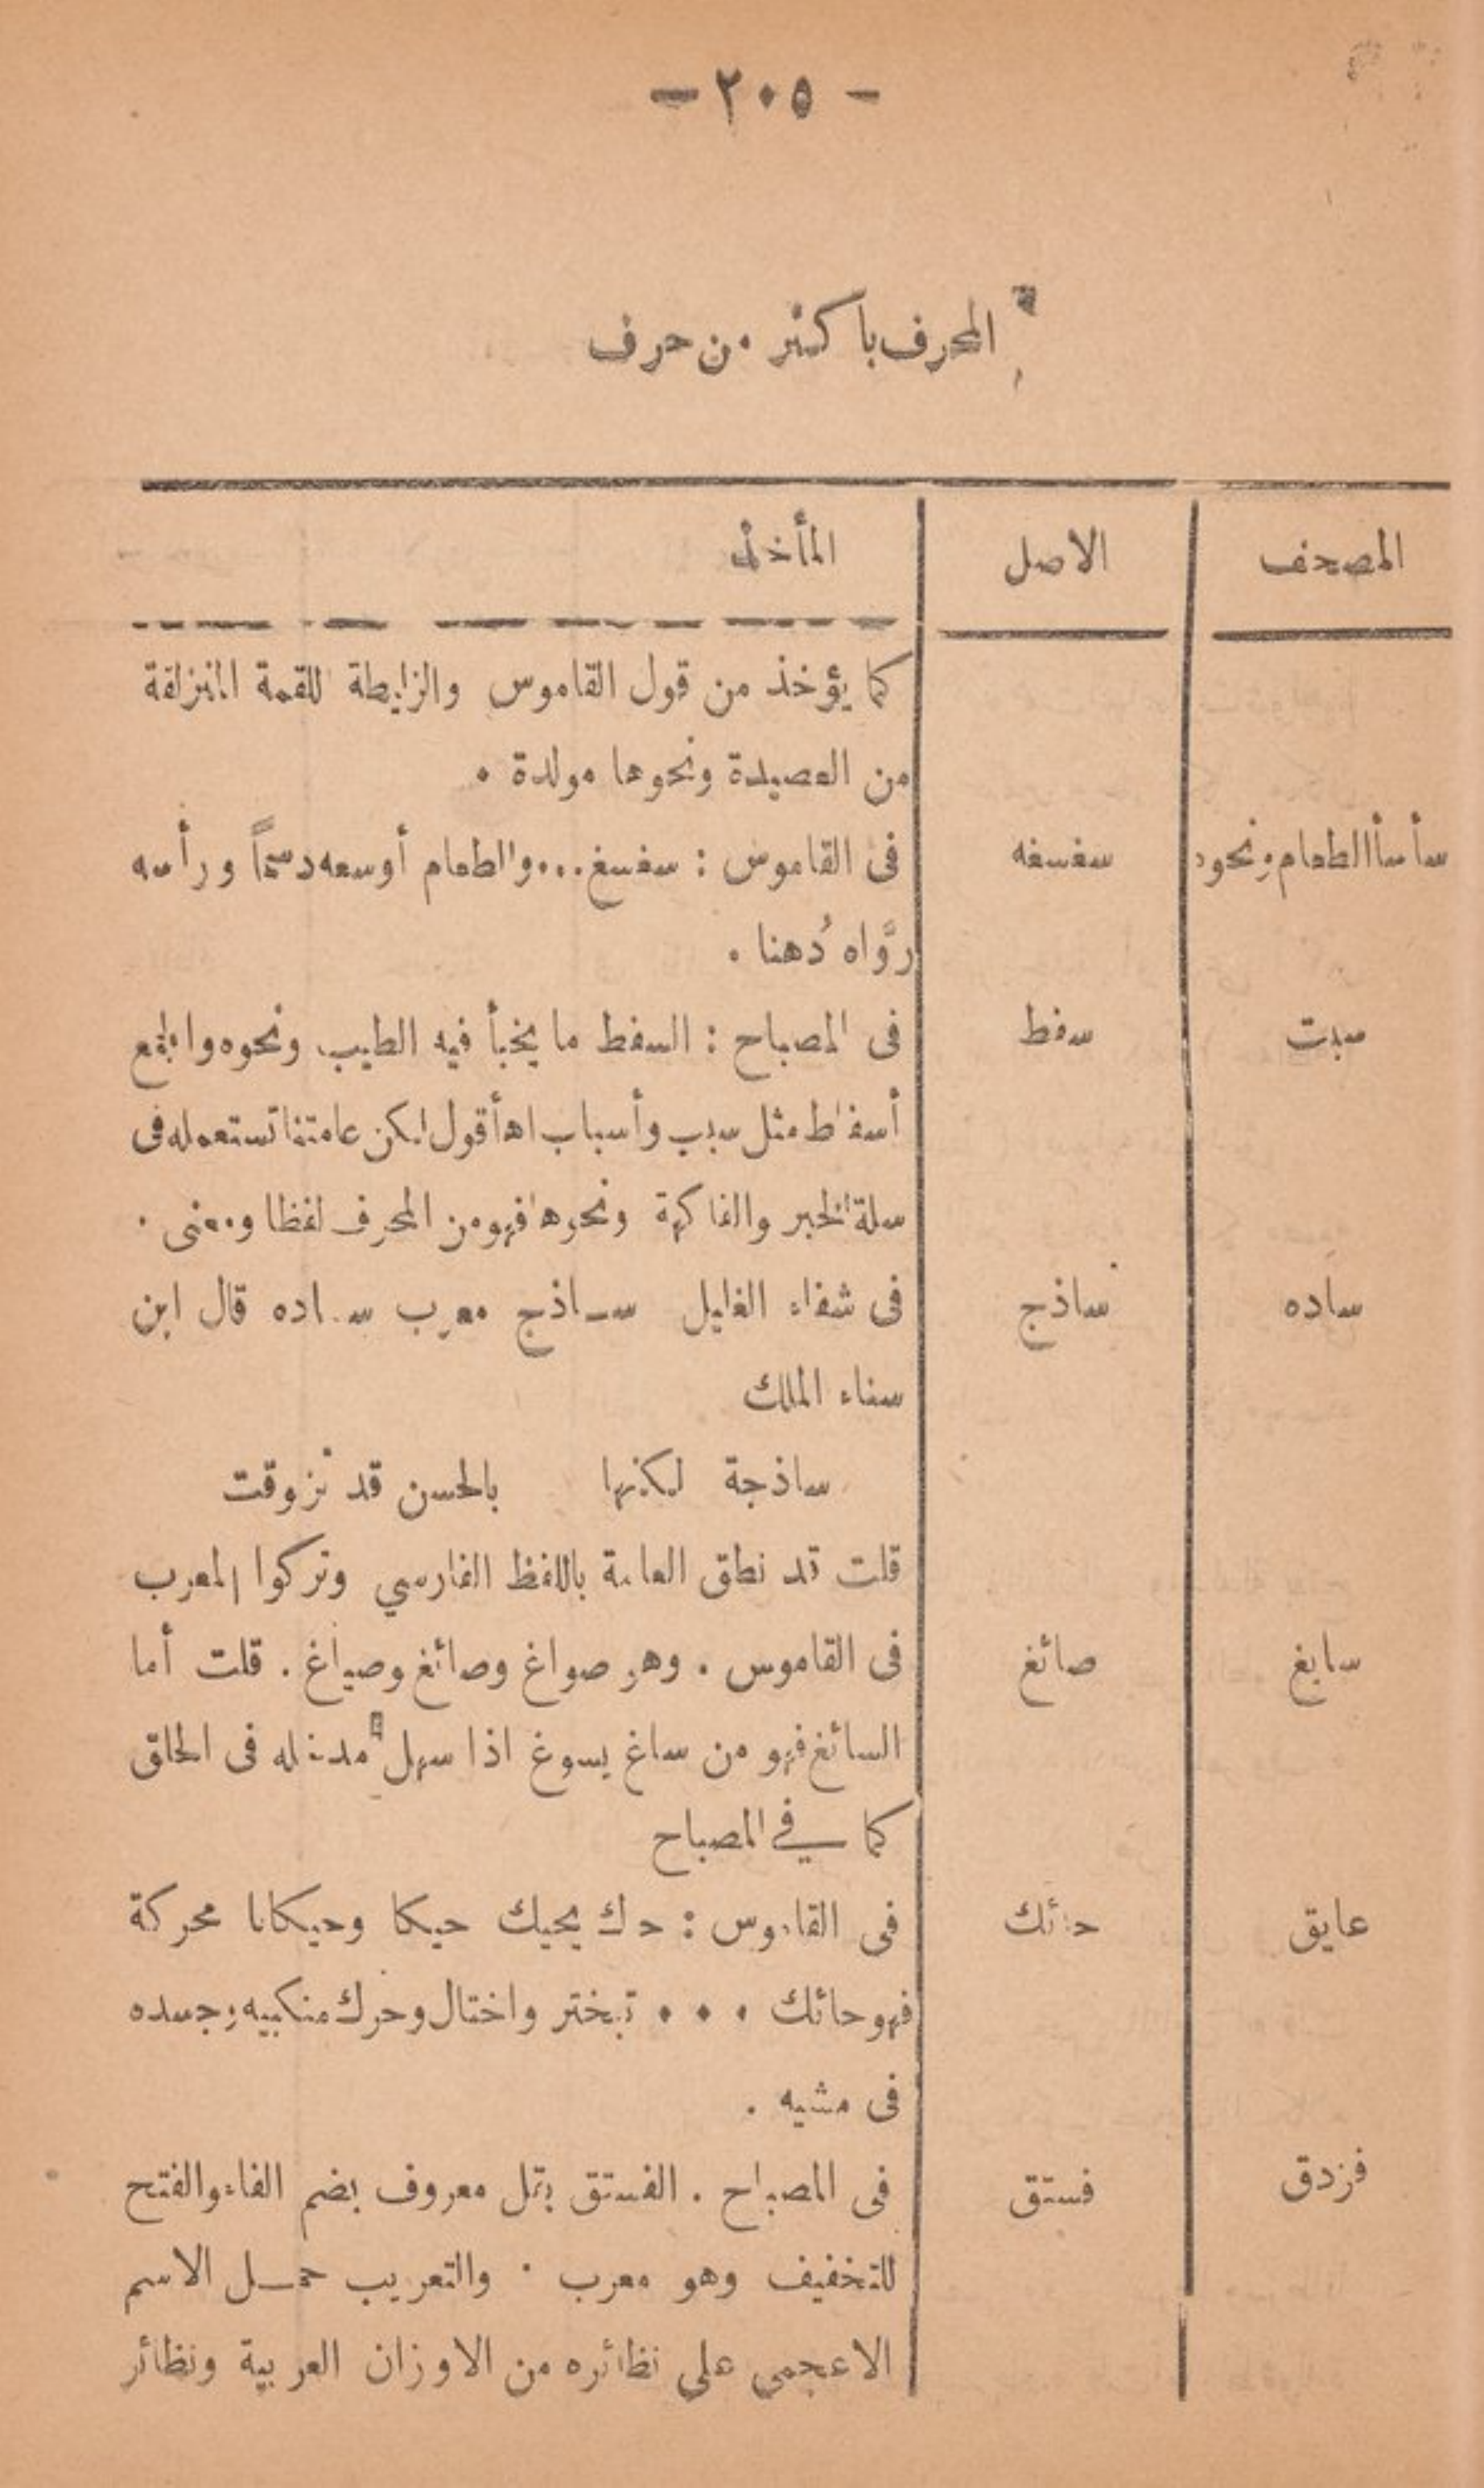 — ٢٠٥ —
المحرف باكثر من حرف
المصحف الاصل المأخذ
كما يؤخذ من قول القاموس والزليطة للقمة المنزلقة
من العصيدة ونحوها مولدة .
سأسأ الطعام ونحوه سغسغه فى القاموس : سغسغ ... والطعام أوسعه دسماً ورأسه
روَّاه دُهنا .
سبت سفط فى المصباح : السفط ما يخبأ فيه الطيب ونحوه والجمع
أسفاط مثل سبب وأسباب اه أقول لكن عامتنا تستعمله فى
سلة الخبز والفاكهة ونحوها فهو من المحرف لفظا ومعنى .
ساده ساذج فى شفاء الغليل ساذج معرب ساده قال ابن
سناء الملك
ساذجة لكنها بالحسن قد تزوقت
قلت قد نطق العامة باللفظ الفارسي وتركوا المعرب
سايغ صائغ فى القاموس . وهو صواغ وصائغ وصياغ . قلت أما
السائغ فهو من ساغ يسوغ اذا سهل مدخله فى الحلق
كما في المصباح
عايق حائك فى القاموس : حاك يحيك حيكا وحيكانا محركة
فهو حائك . . . تبختر واختال وحرك منكبيه وجسده
فى مشيه .
فزدق فستق فى المصباح . الفستق بقل معروف بضم الفاء والفتح
للتخفيف وهو معرب . والتعريب حمل الاسم
الاعجمى على نظائره من الاوزان العربية ونظائر